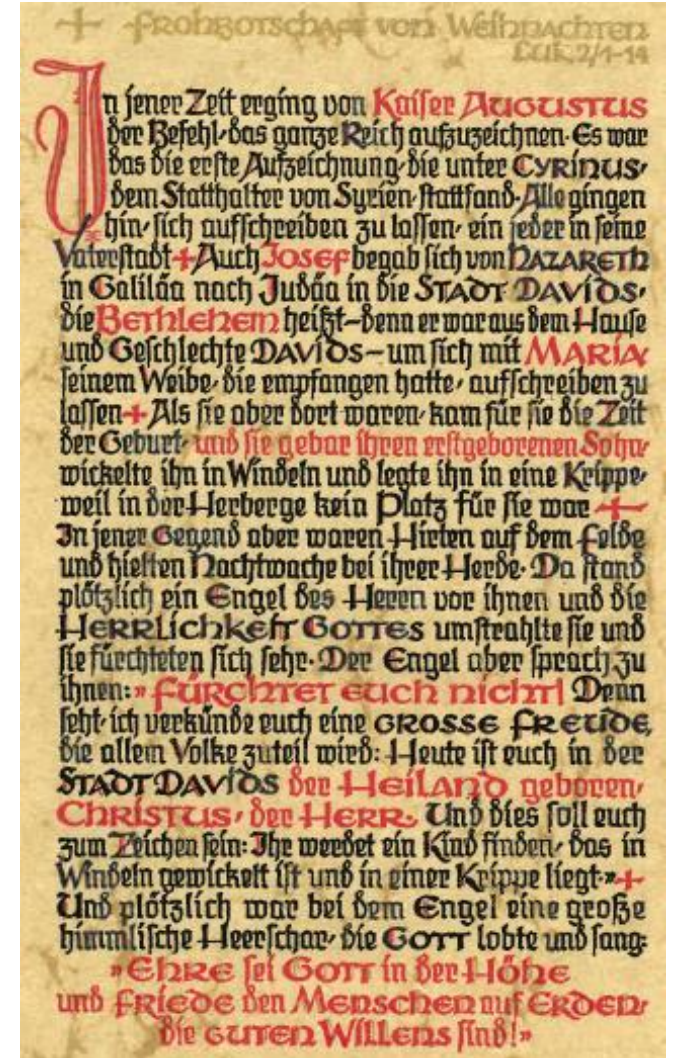 + Frohbotschaft von Weihnachten
Luk. 2/1-14
In jener Zeit erging von Kaiser Augustus
der Befehl, das ganze Reich aufzuzeichnen. Es war
das die erste Aufzeichnung, die unter Cyrinus,
dem Statthalter von Syrien, stattfand. Alle gingen
hin, sich aufschreiben zu lassen, ein jeder in seine
Vaterstadt + Auch Josef begab sich von Nazareth
in Galiläa nach Judäa in die Stadt Davids,
die Bethlehem heißt – denn er war aus dem Hause
und Geschlechte Davids – um sich mit Maria,
seinem Weibe, die empfangen hatte, aufschreiben zu
lassen + Als sie aber dort waren, kam für sie die Zeit
der Geburt, und sie gebar ihren erstgeborenen Sohn,
wickelte ihn in Windeln und legte ihn in eine Krippe,
weil in der Herberge kein Platz für sie war +
In jener Gegend aber waren Hirten auf dem Felde
und hielten Nachtwache bei ihrer Herde. Da stand
plötzlich ein Engel des Herrn vor ihnen und die
Herrlichkeit Gottes umstrahlte sie und
sie fürchteten sich sehr. Der Engel aber sprach zu
ihnen: » Fürchtet euch nicht! Denn
seht, ich verkünde euch eine grosse Freude,
die allem Volke zuteil wird: Heute ist euch in der
Stadt Davids der Heiland geboren,
Christus, der Herr. Und dies soll euch
zum Zeichen sein: Ihr werdet ein Kind finden, das in
Windeln gewickelt ist und in einer Krippe liegt.» +
Und plötzlich war bei dem Engel eine große
himmlische Heerschar, die Gott lobte und sang:
»Ehre sei Gott in der Höhe
und Friede den Menschen auf Erden,
die guten Willens sind!»